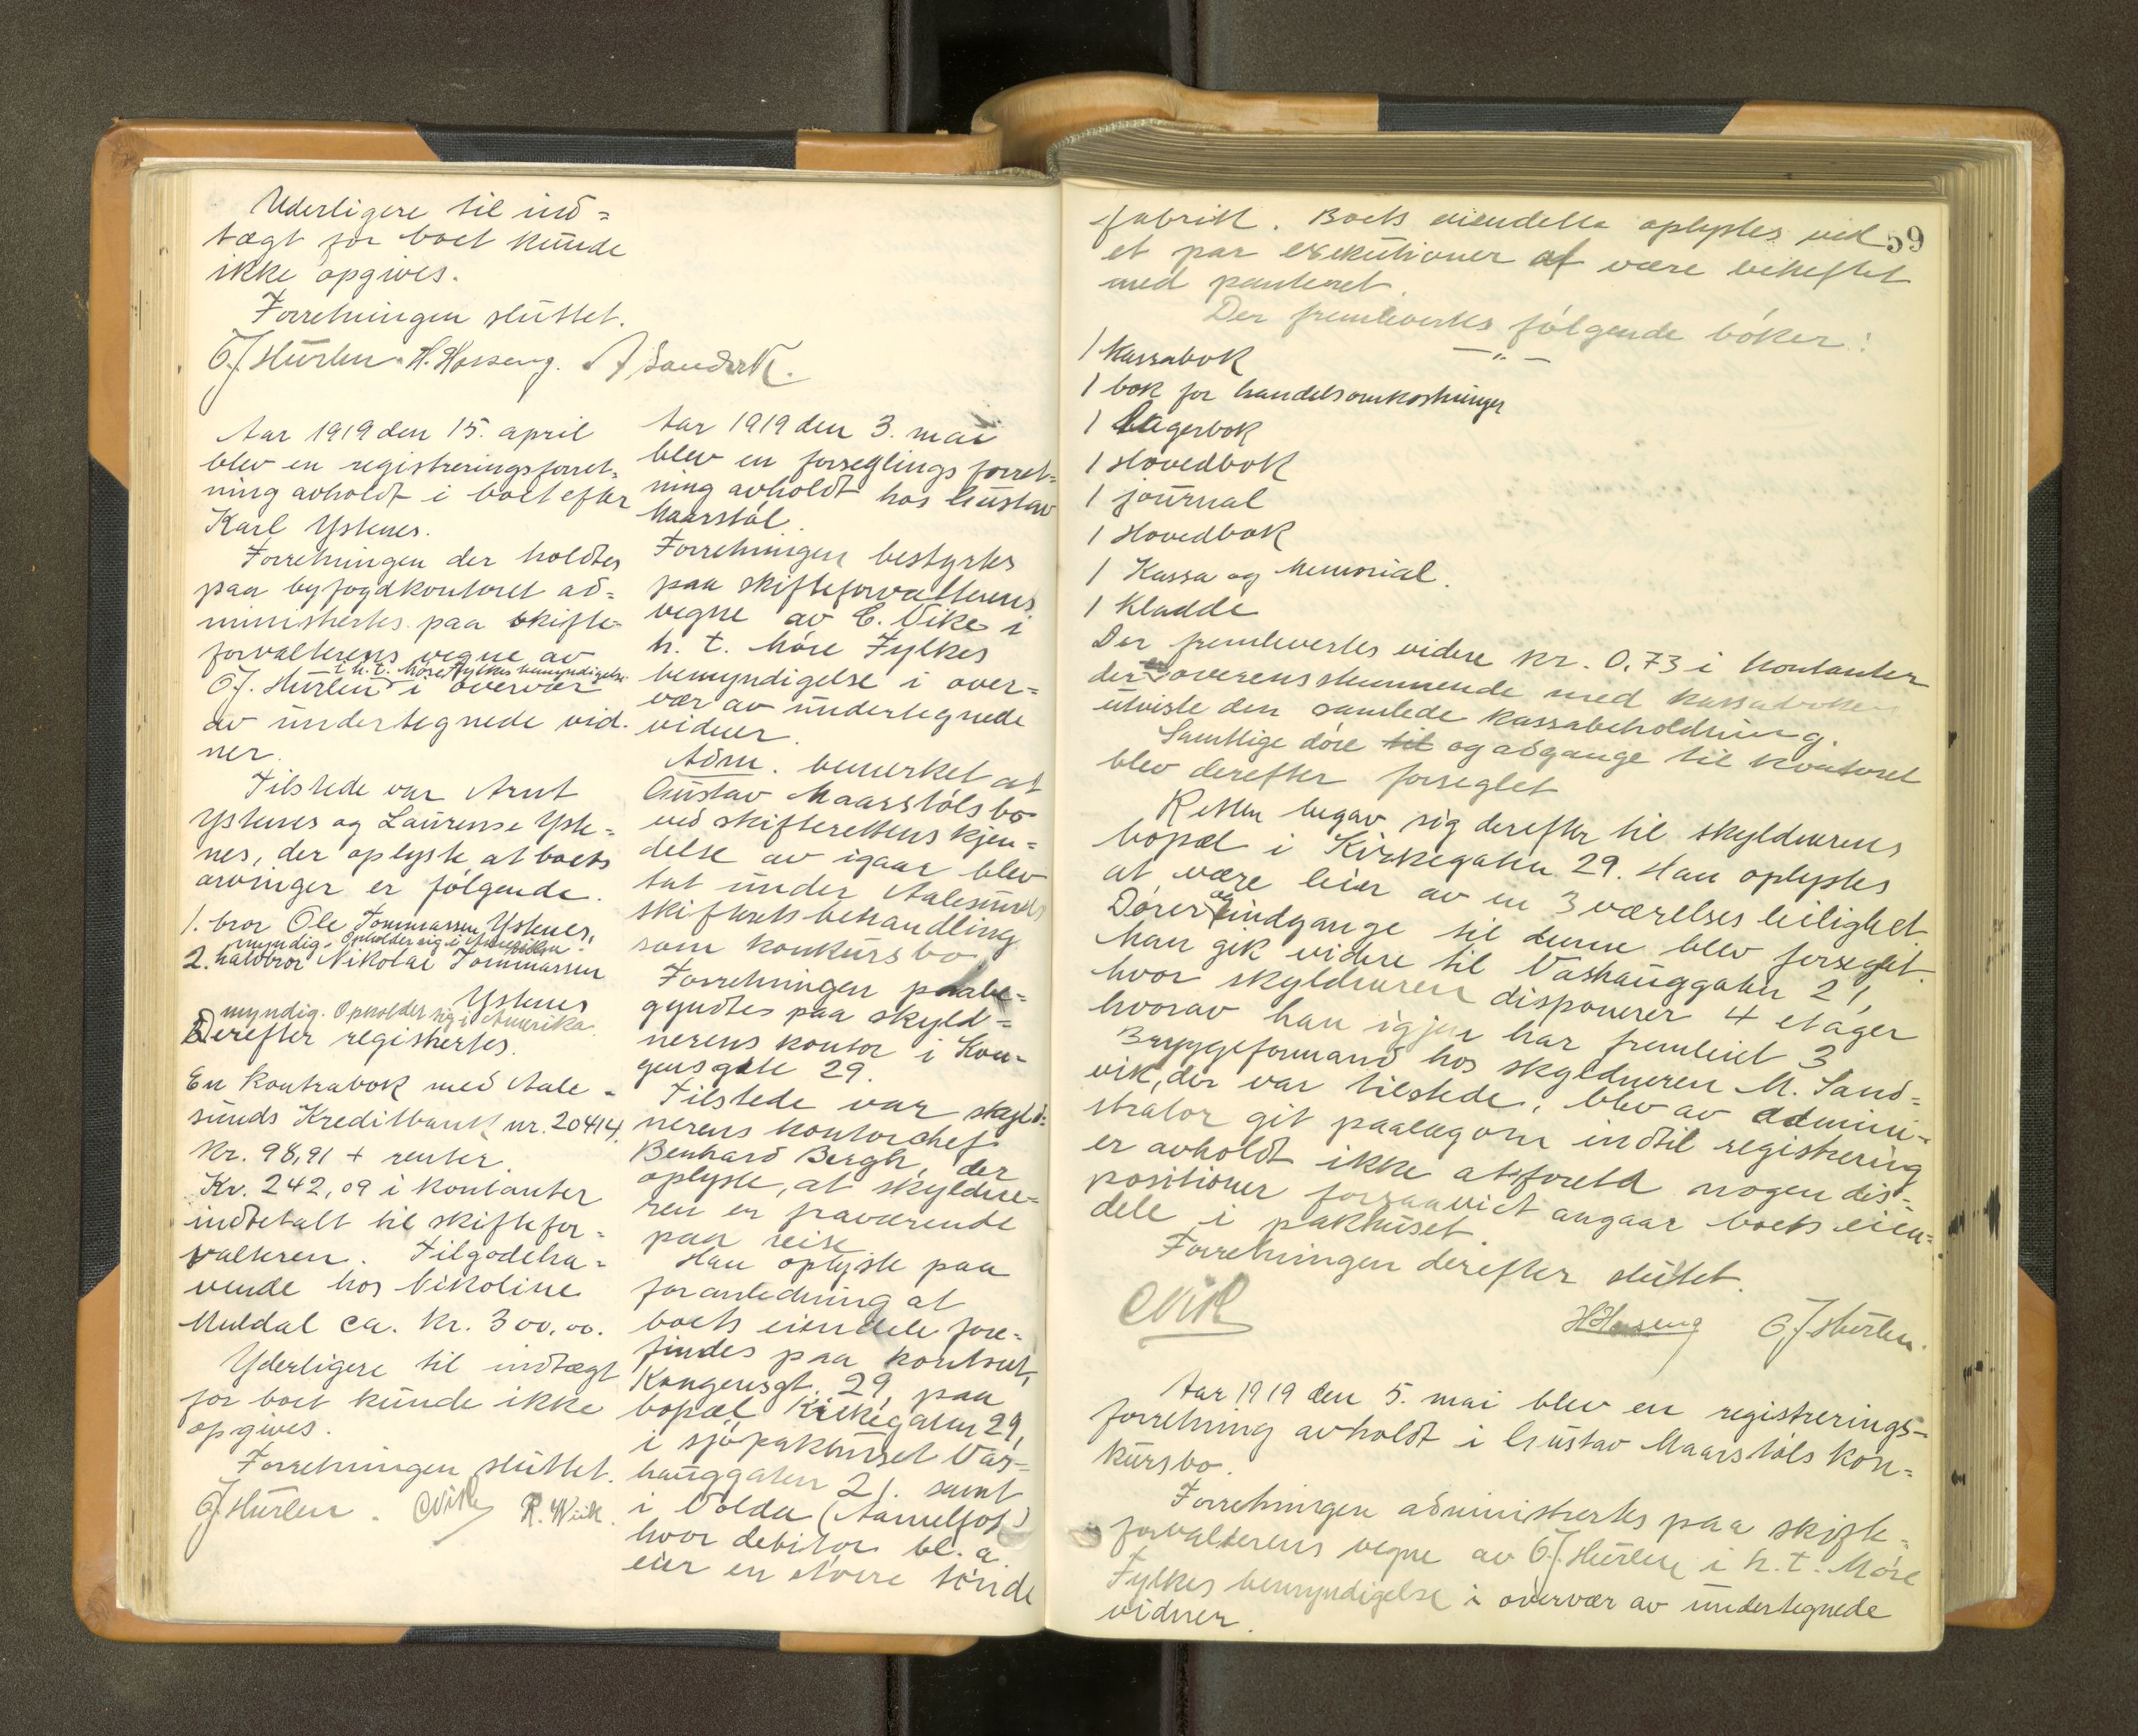 Yderligere til ind=
tægt for boet kunde
ikke opgives.
Forretningen sluttet.
O.J. Hurlen. H. Hasseng. A Sandvik.
Aar 1919 den 15. april
blev en registreringsforret=
ning avholdt i boet efter
Karl Ystenes.
Forretningen der holdtes
paa byfogdkontoret ad=
ministrertes paa skifte-
forvalterens vegne av
i h. t. Møre Fylkes bemyndigelse
O.J. Hurlen i overvær
av undertegnede vid-
ner.
Tilstede var Arnt
Ystenes og Laurense Yste=
nes, der oplyste at boets
arvinger er følgende.
1. bror Ole Tommassen Ystenes,
myndig. Opholder sig i Amerika
2. halvbror Nikolai Tommassen
Ystenes
myndig. Opholder sig i Amerika.
Derefter registrertes.
En kontrabok med Aale-
sunds Kreditbank nr. 20414.
Kr. 98,91 + renter.
Kr. 242,09 i kontanter
indbetalt til skiftefor=
valteren. Tilgodeha=
vende hos Nikoline
Muldal ca. kr. 300,00.
Yderligere til indtægt
for boet kunde ikke
opgives.
Forretningen sluttet.
O.J. Hurlen. CVik R. Wiik.
Aar 1919 den 3. mai
blev en forseglings forret=
ning avholdt hos Gustav
Maarstøl.
Forretningen bestyrtes
paa skifteforvalterens
vegne av C. Vike i
h. t. Møre Fylkes
bemyndigelse i over=
vær av undertegnede
vidner.
Adm. bemerket at
Gustav Maarstøls bo
ved skifterettens kjen=
delse av igaar blev
tat under Aalesunds
skifterets behandling
som konkursbo
Forretningen paabe=
gyndtes paa skyld=
nerens kontor i Kon-
gensgate 29.
Tilstede var skyld=
nerens kontorchef
Benhard Bergh, der
oplyste, at skyldne=
ren er fraværende
paa reise
Han oplyste paa
foranledning at
boets eiendele fore=
findes paa kontoret,
Kongensgt. 29, paa
bopæl Kirkegaten 29,
i sjøpakhuset Vas=
hauggaten 21. samt
i Volda (Aamelfot)
hvor debitor bl. a.
eier en større tønde
59
fabrik. Boets eiendelle oplystes ved
et par exekutioner at være beheftet
med panteret.
Der fremlevertes følgende bøker:
1 Kassabok — " —
1 bok for handelsomkostninger
1 Lagerbok
1 Hovedbok
1 journal
1 Hovedbok
1 Kassa og Memorial.
1 Kladde
Der fremlevertes videre kr. 0,73 i kontanter
der overensstemmende med kassaboken
utviste den samlede kassabeholdning.
Samtlige døre til og adgange til kontoret
blev derefter forseglet
Retten begav sig derefter til skyldnerens
bopæl i Kirkegaten 29. Han oplystes
at være leier av en 3 værelses leilighet.
Dører og indgange til denne blev forseglet.
Man gik videre til Vashauggaten 21,
hvor skyldneren disponerer 4 etager
hvorav han igjen har fremleiet 3
Bryggeformand hos skyldneren M. Sand=
vik, der var tilstede, blev av admini-
strator git paalæg om indtil registrering
er avholdt ikke at foreta nogen dis=
positioner forsaavidt angaar boets eien=
dele i pakhuset.
Forretningen derefter sluttet.
CVik HHasseng O.J. Hurlen.
Aar 1919 den 5. mai blev en registrerings-
forretning avholdt i Gustav Maarstøls kon=
kursbo.
Forretningen administrertes paa skifte=
forvalterens vegne av O.J. Hurlen i h. t. Møre
Fylkes bemyndigelse i overvær av undertegnede
vidner.